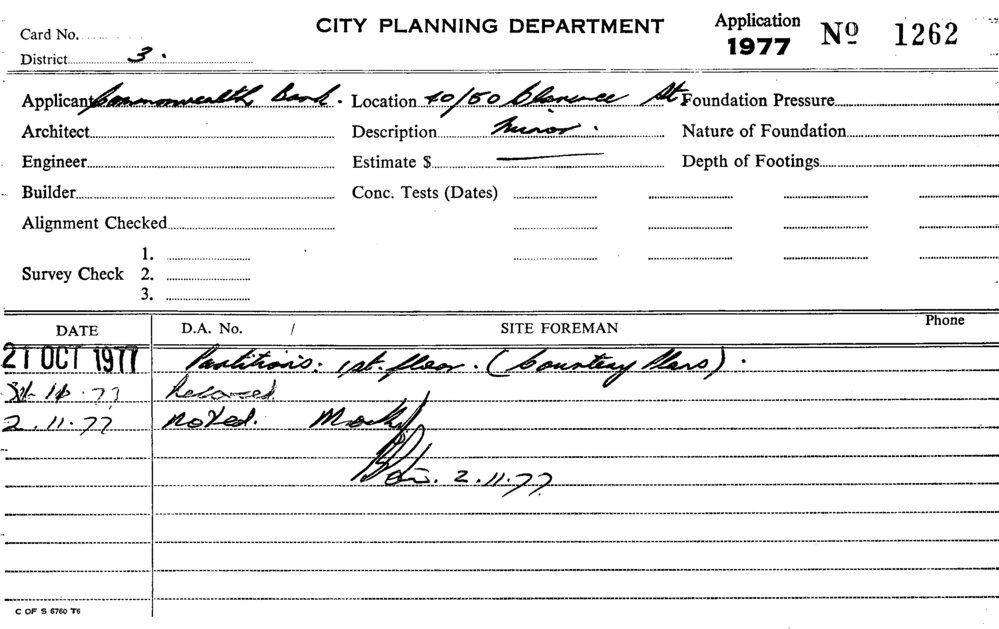 CITY PLANNING DEPARTMENT
Application
1977
Nº 1262
Card No.
District 3.
Applicant Commonwealth Bank. Location 40/50 Clarence St. Foundation Pressure
Architect Description Minor. Nature of Foundation
Engineer Estimate $ Depth of Footings
Builder Conc. Tests (Dates)
Alignment Checked
1.
Survey Check 2.
3.
DATE D.A. No. / SITE FOREMAN Phone
21 OCT 1977 Partitions: 1st. floor. (Courtesy Plans).
.77
2.11.77 Noted.
2.11.77
C OF S 6760 T6